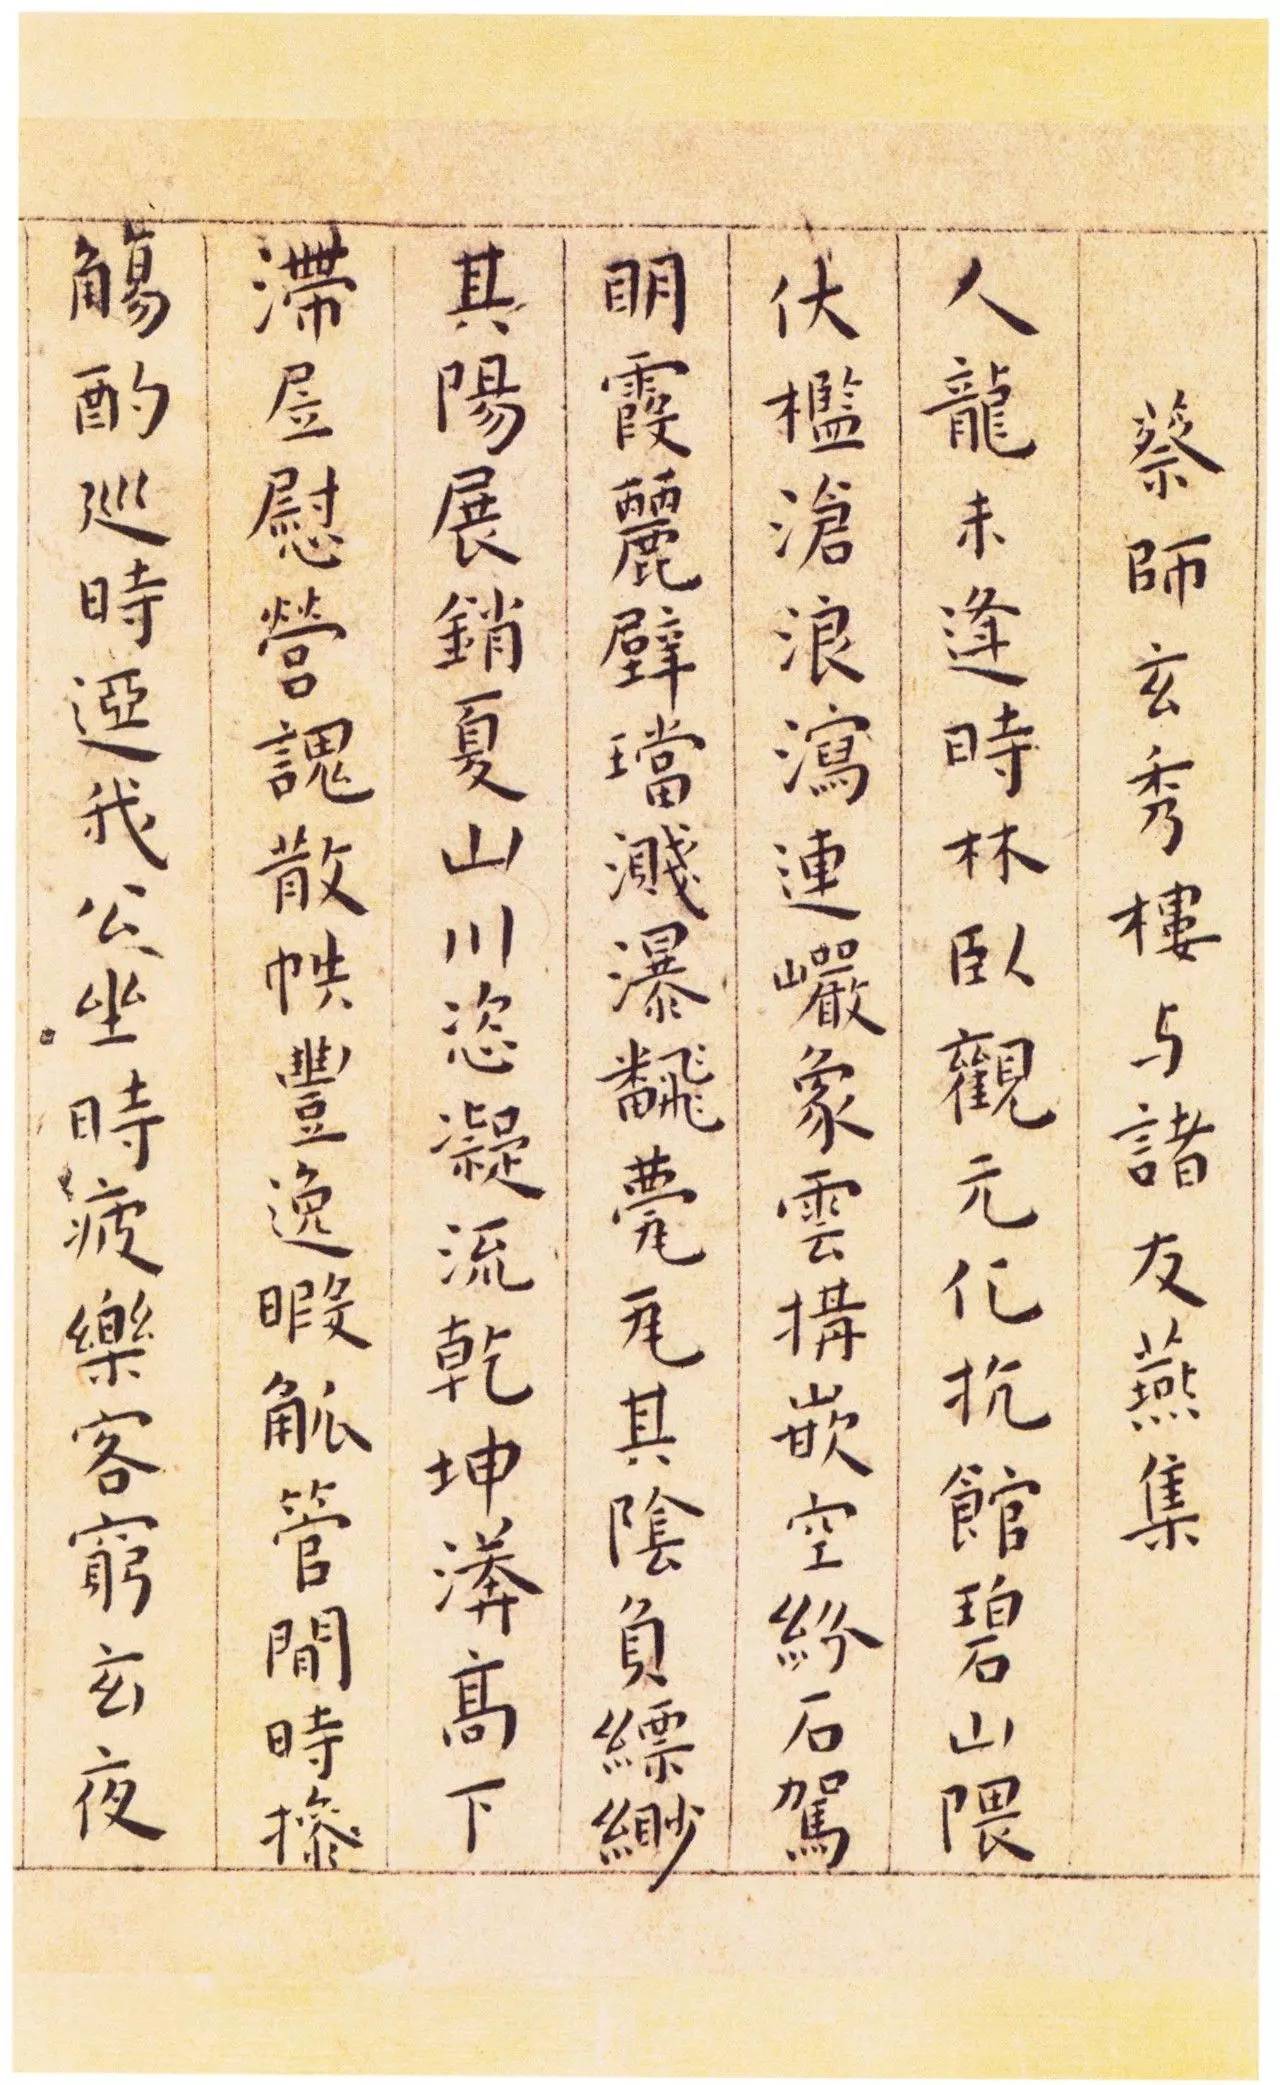 蔡師玄秀樓与諸友燕集
人龍未逢時林臥觀元化抗館碧山隈
伏檻滄浪瀉連巖象雲構嵌空紛石駕
明霞麗壁璫濺瀑飜甍瓦其陰負縹緲
其陽展銷夏山川恣凝流乾坤漭高下
滯慰營諰散帙豐逸暇觚管閒時操
觴酌巡時迓我公坐時疲樂客窮玄夜